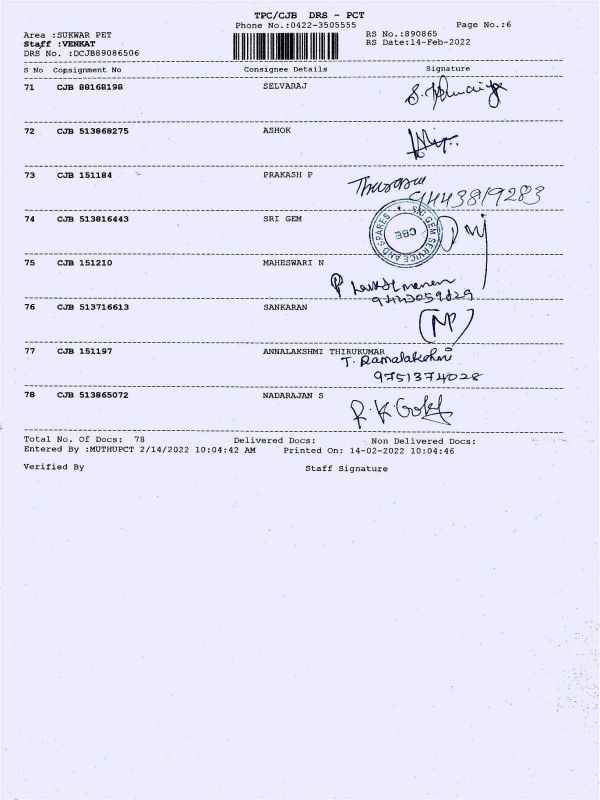 TPC/CJB DRS - PCT
Phone No.:0422-3505555
Page No.:6
Area :SUKWAR PET
RS No.:890865
Staff :VENKAT
RS Date:14-Feb-2022
DRS No. :DCJB89086506
S No Consignment No Consignee Details Signature
71 CJB 88168198 SELVARAJ
72 CJB 513868275 ASHOK
73 CJB 151184 PRAKASH P
9443819283
74 CJB 513816443 SRI GEM
SRI GEM SERVICE AND SPARES
CBE
75 CJB 151210 MAHESWARI N
P Lakshmanan
9442059829
76 CJB 513716613 SANKARAN
77 CJB 151197 ANNALAKSHMI THIRUKUMAR
T. Ramalakshmi
9751374028
78 CJB 513865072 NADARAJAN S
Total No. Of Docs: 78 Delivered Docs: Non Delivered Docs:
Entered By :MUTHUPCT 2/14/2022 10:04:42 AM Printed On: 14-02-2022 10:04:46
Verified By Staff Signature